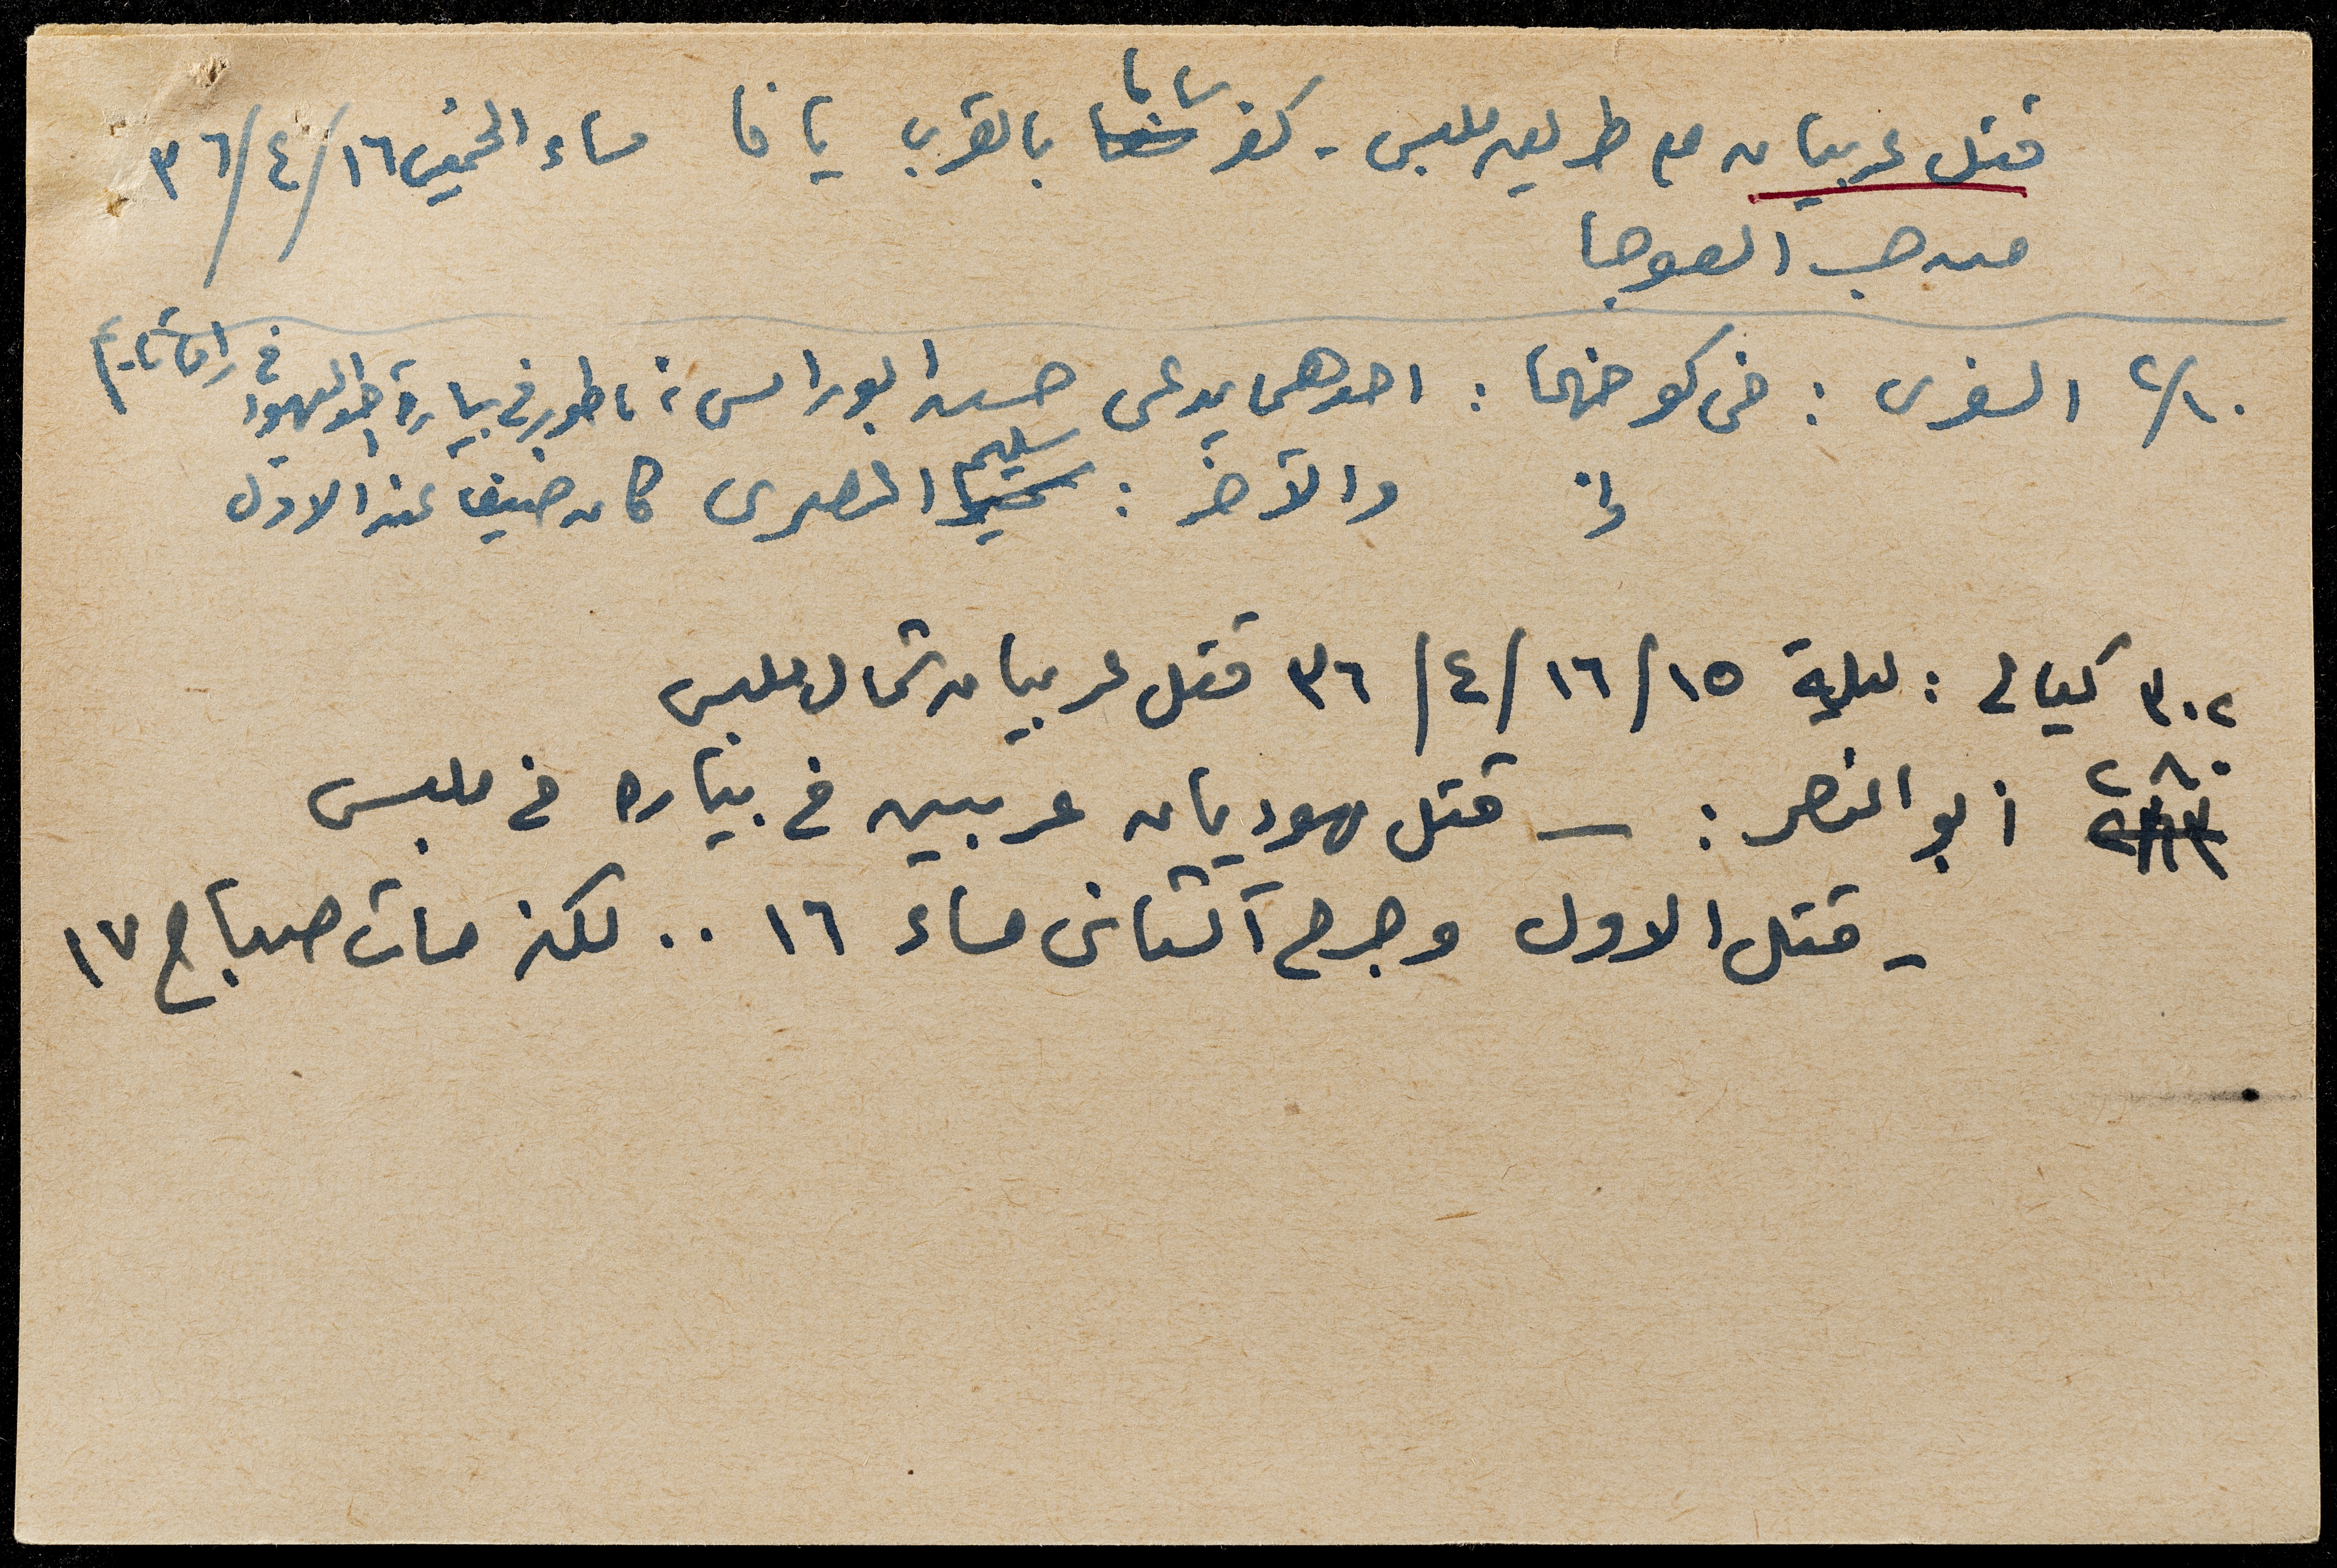 قتل عربيان ع طريق ملبس - كفر سابا بالقرب يافا مساء الخميس ١٦/٤/٣٦
من العوجا
٢/١٠ السفرى : فى كوخهما : احدهما يدعى حسن ابو راس، ناطور فى بيارة احد اليهود فى رامتايم
والآخر : سليم المصرى كان ضيفا عند الاول
٣٠٢ كيالى : ليلة ١٥/١٦/٤/٣٦ قتل عربيان شمال ملبس
٢٨٠ ابو النصر : — قتل يهوديان عربيين فى بياره فى ملبس
- قتل الاول وجرح الثانى مساء ١٦ .. لكنه مات صباح ١٧